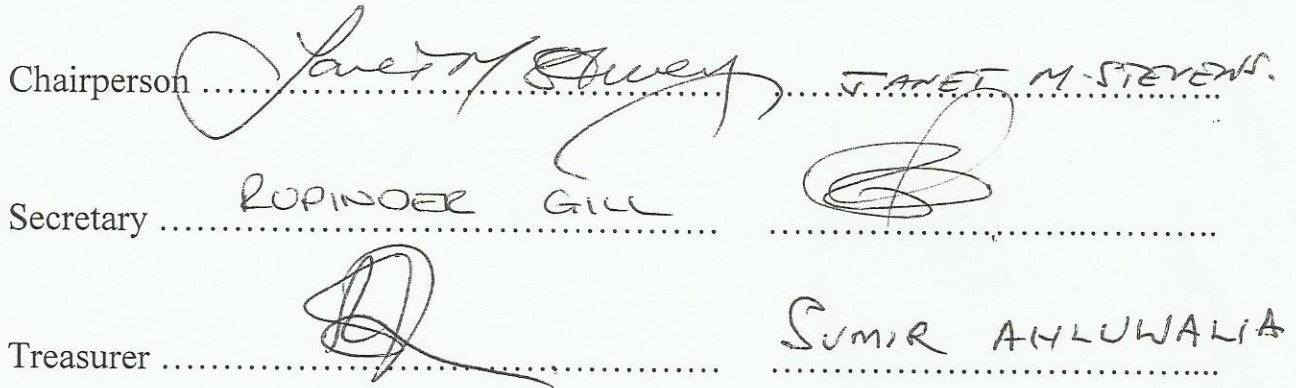 Chairperson Janet M Stevens JANET M. STEVENS.
Secretary RUPINDER GILL
Treasurer SUMIR AHLUWALIA